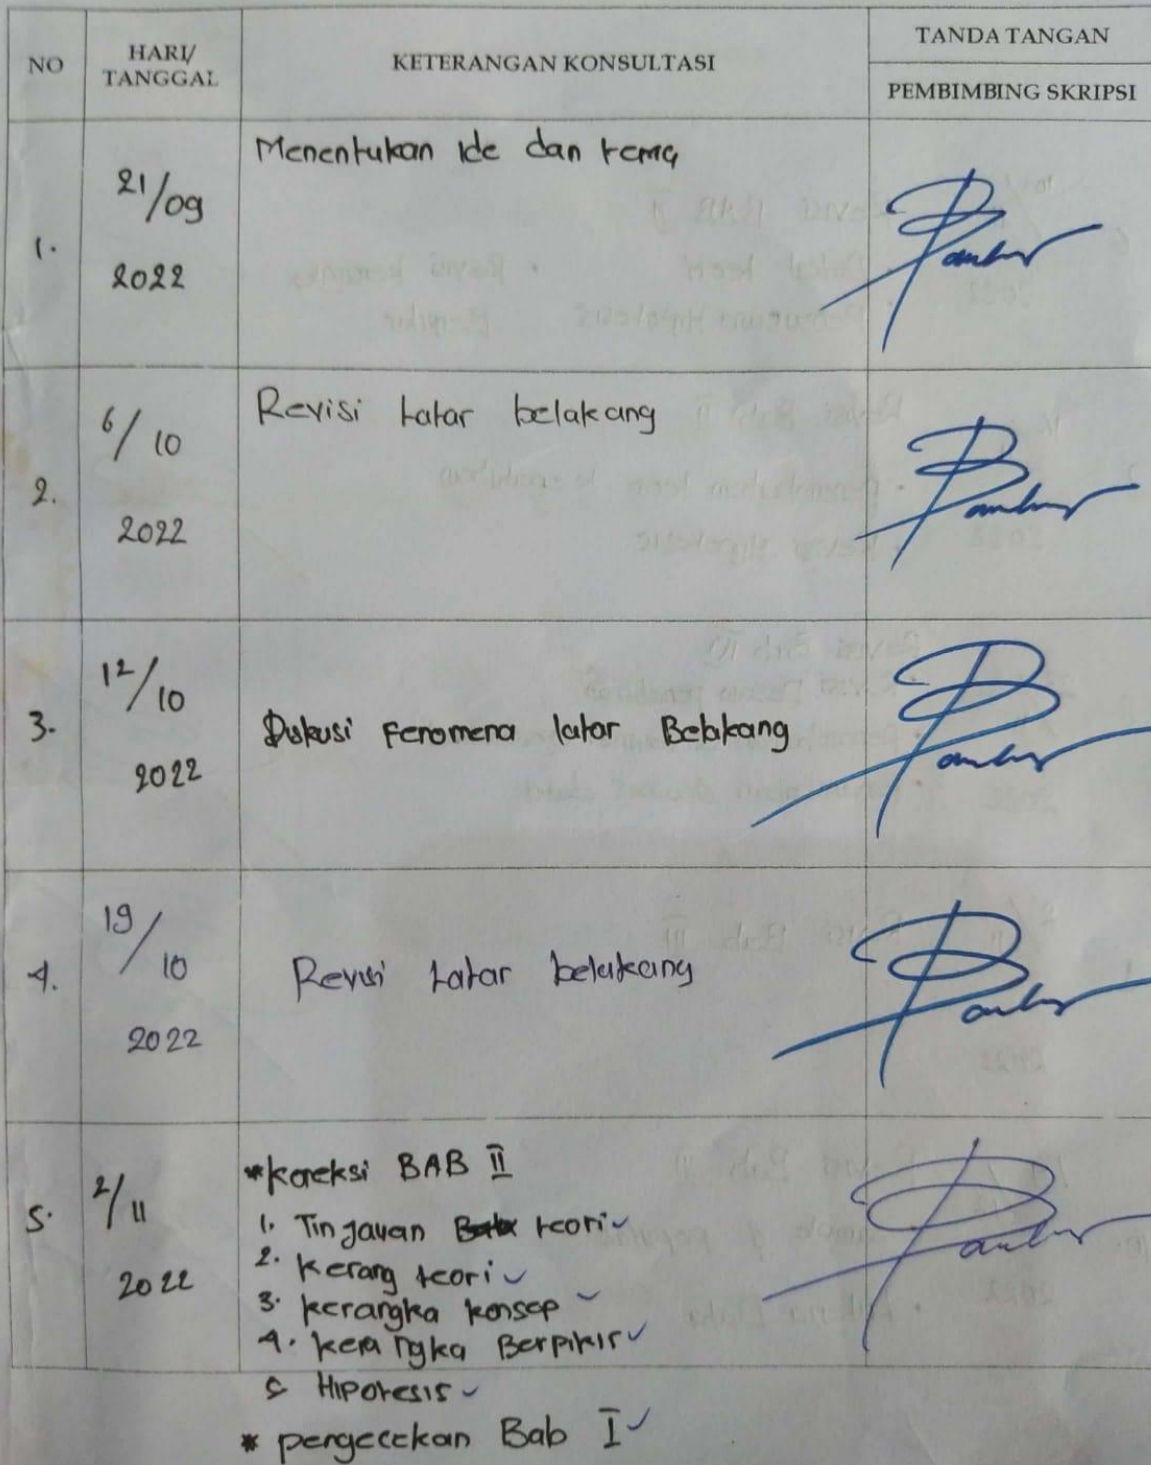 NO
HARI/
TANGGAL
KETERANGAN KONSULTASI
TANDA TANGAN
PEMBIMBING SKRIPSI
1.
21/09
2022
Menentukan Ide dan tema
2.
6/10
2022
Revisi Latar belakang
3.
12/10
2022
Diskusi Fenomena latar Belakang
4.
19/10
2022
Revisi Latar belakang
5.
2/11
2022
*Koreksi BAB II
1. Tinjauan teori ✓
2. Kerang teori ✓
3. Kerangka Konsep ✓
4. Kerangka Berpikir ✓
5 Hipotesis ✓
* pengecekan Bab I ✓